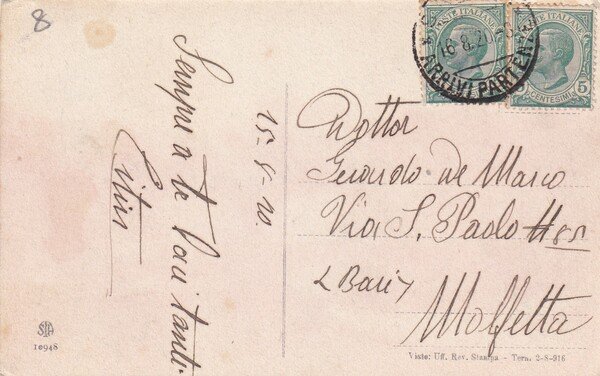 8
Sempre a te baci tanti
15-8-20.
POSTE ITALIANE
16.8.2
ARRIVI PARTENZ
5
CENTESIMI
5
Dottor
Gerardo de Marco
Via S. Paolo # 85
(Bari)
Molfetta
10948
Visto: Uff. Rev. Stampa - Tern. 2-8-916